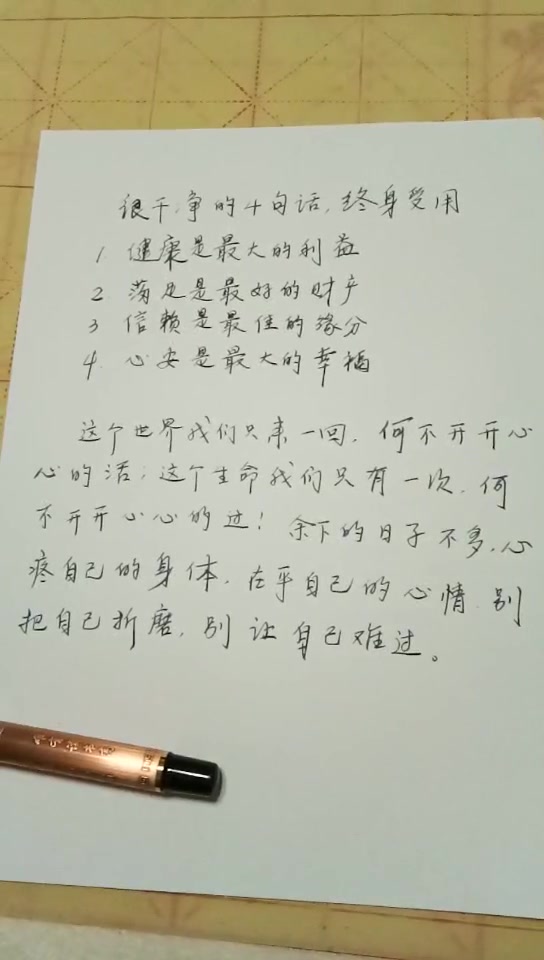 很干净的4句话，终身受用
1 健康是最大的利益
2 满足是最好的财产
3 信赖是最佳的缘分
4. 心安是最大的幸福
这个世界我们只来一回，何不开开心
心的活；这个生命我们只有一次，何
不开开心心的过！余下的日子不多，心
疼自己的身体，在乎自己的心情，别
把自己折磨，别让自己难过。